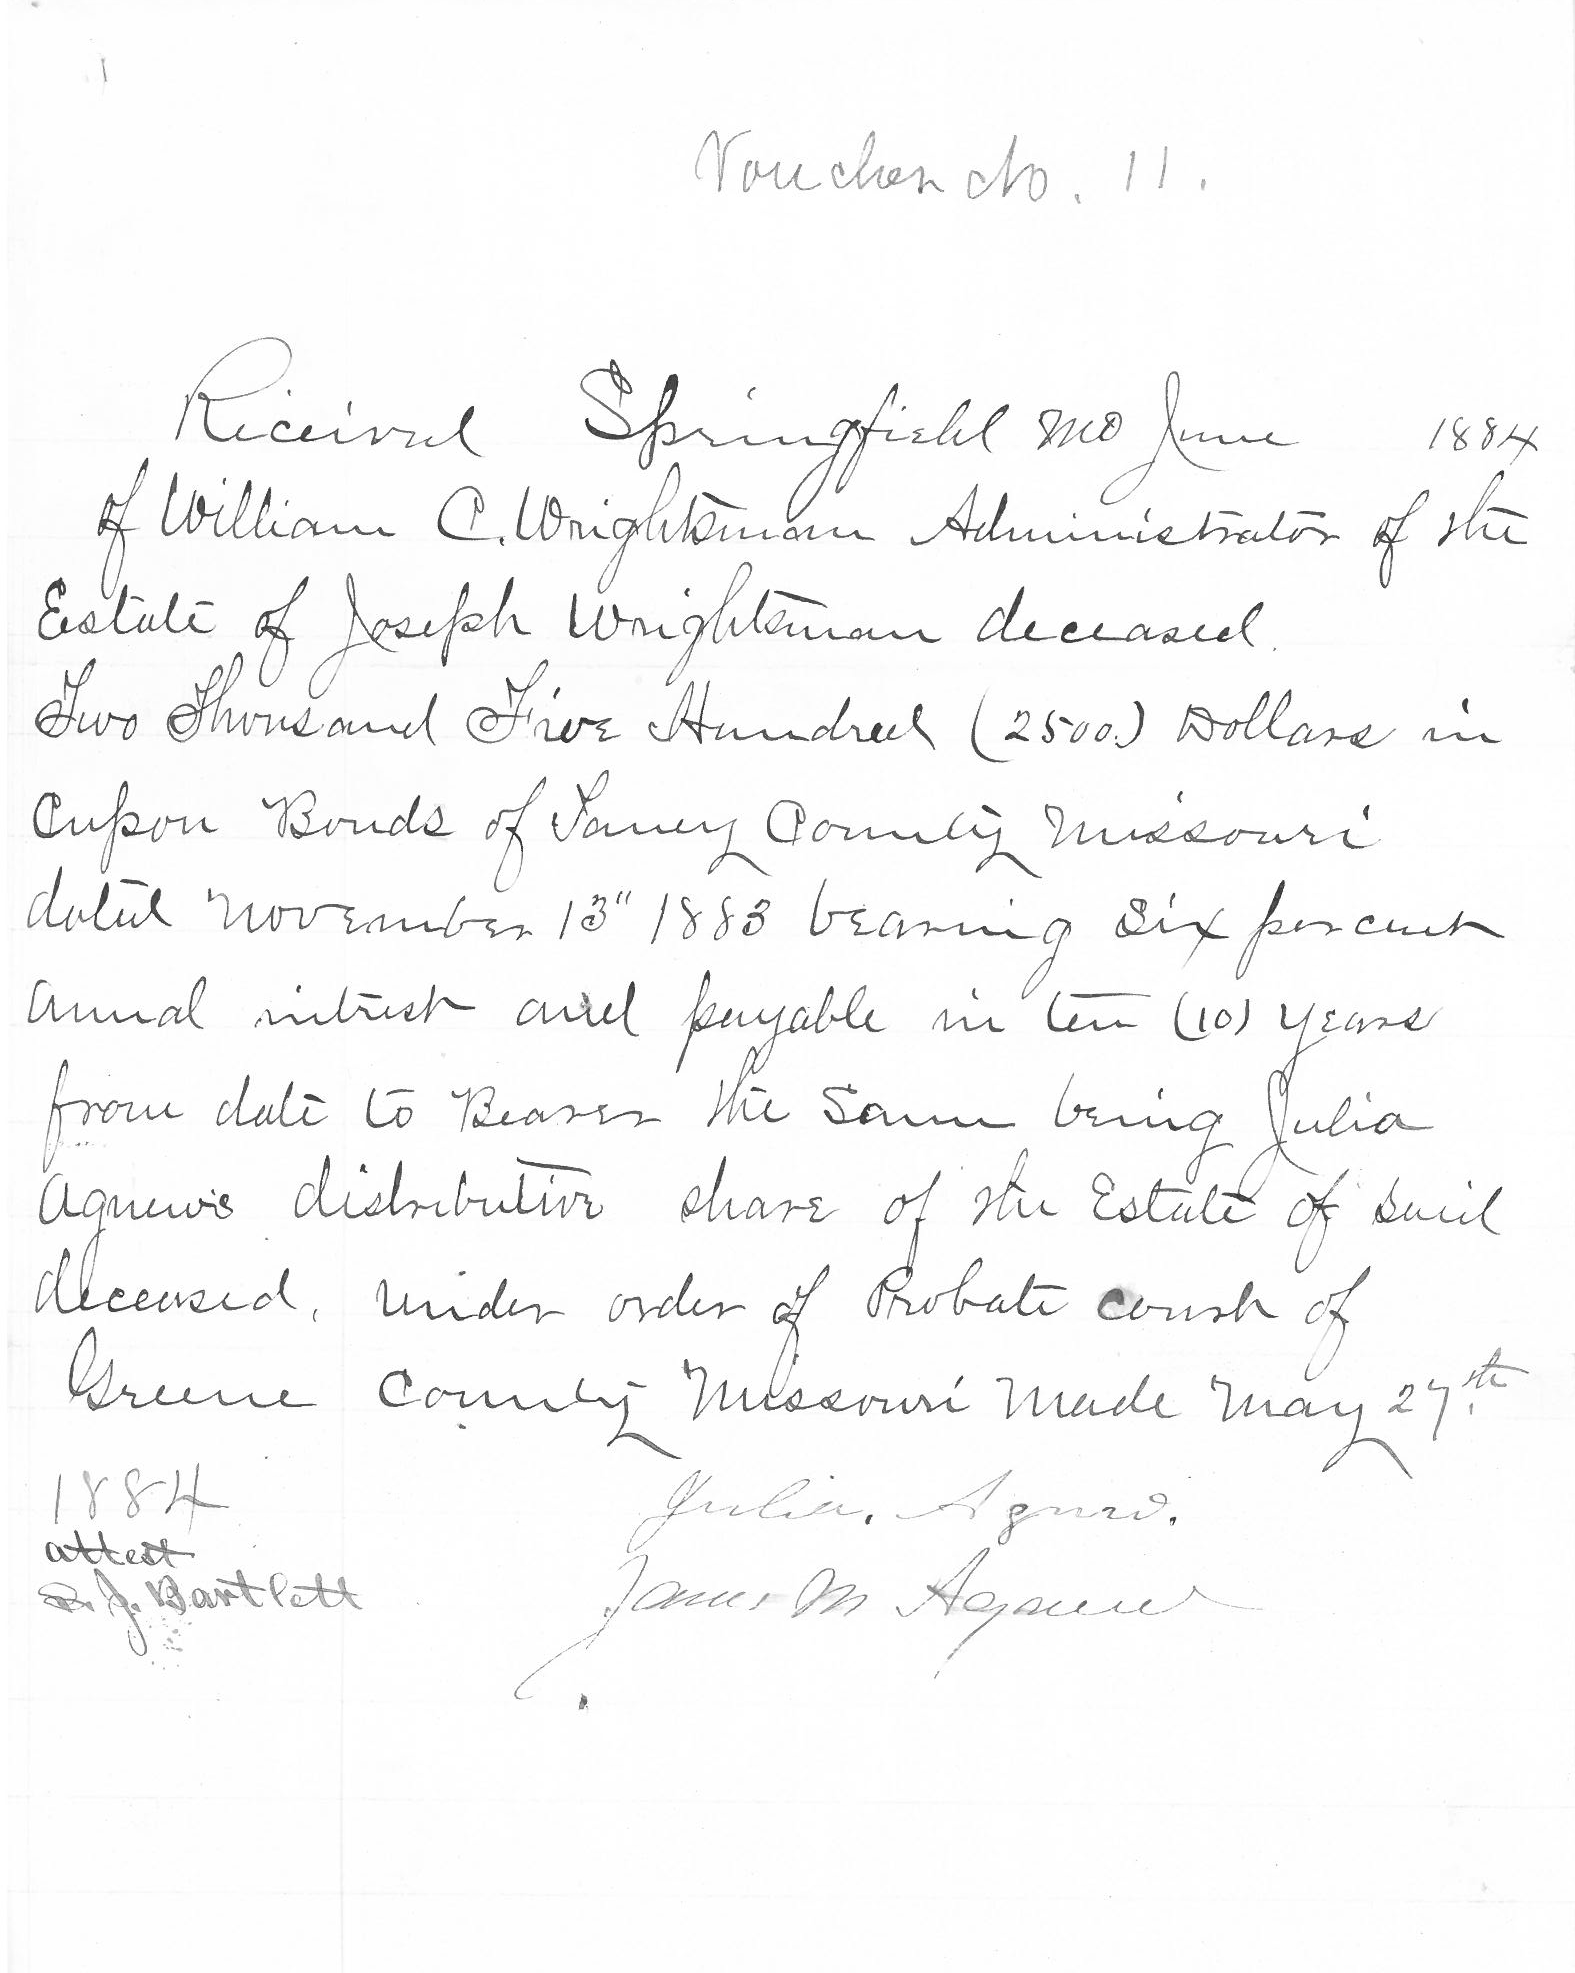 Voucher No. 11.
Received Springfield Mo June 1884
of William C. Wrightsman Administrator of the
Estate of Joseph Wrightsman deceased.
Two Thousand Five Hundred (2500.) Dollars in
Cupon Bonds of Taney County Missouri
dated November 13" 1883 bearing Six per cent
annual intrest and payable in ten (10) years
from date to Bearer the Same being Julia
Agnew's distributive share of the Estate of said
deceased, under order of Probate court of
Greene County Missouri Made May 27th
1884
Julia. Agnew.
attest
James M Agnew
J. Bartlett